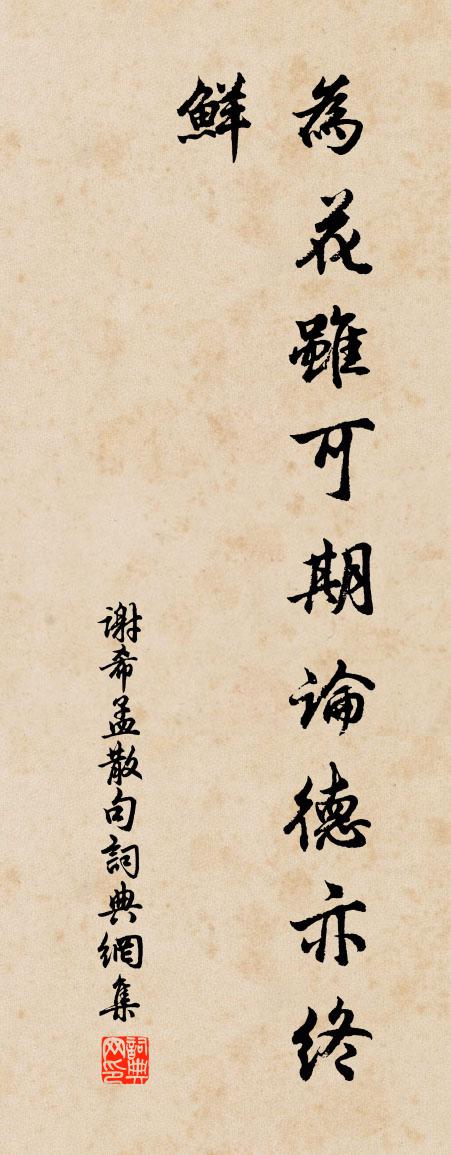 為花雖可期論德亦終
鮮
谢希孟散句詞典網集
詞典
网印